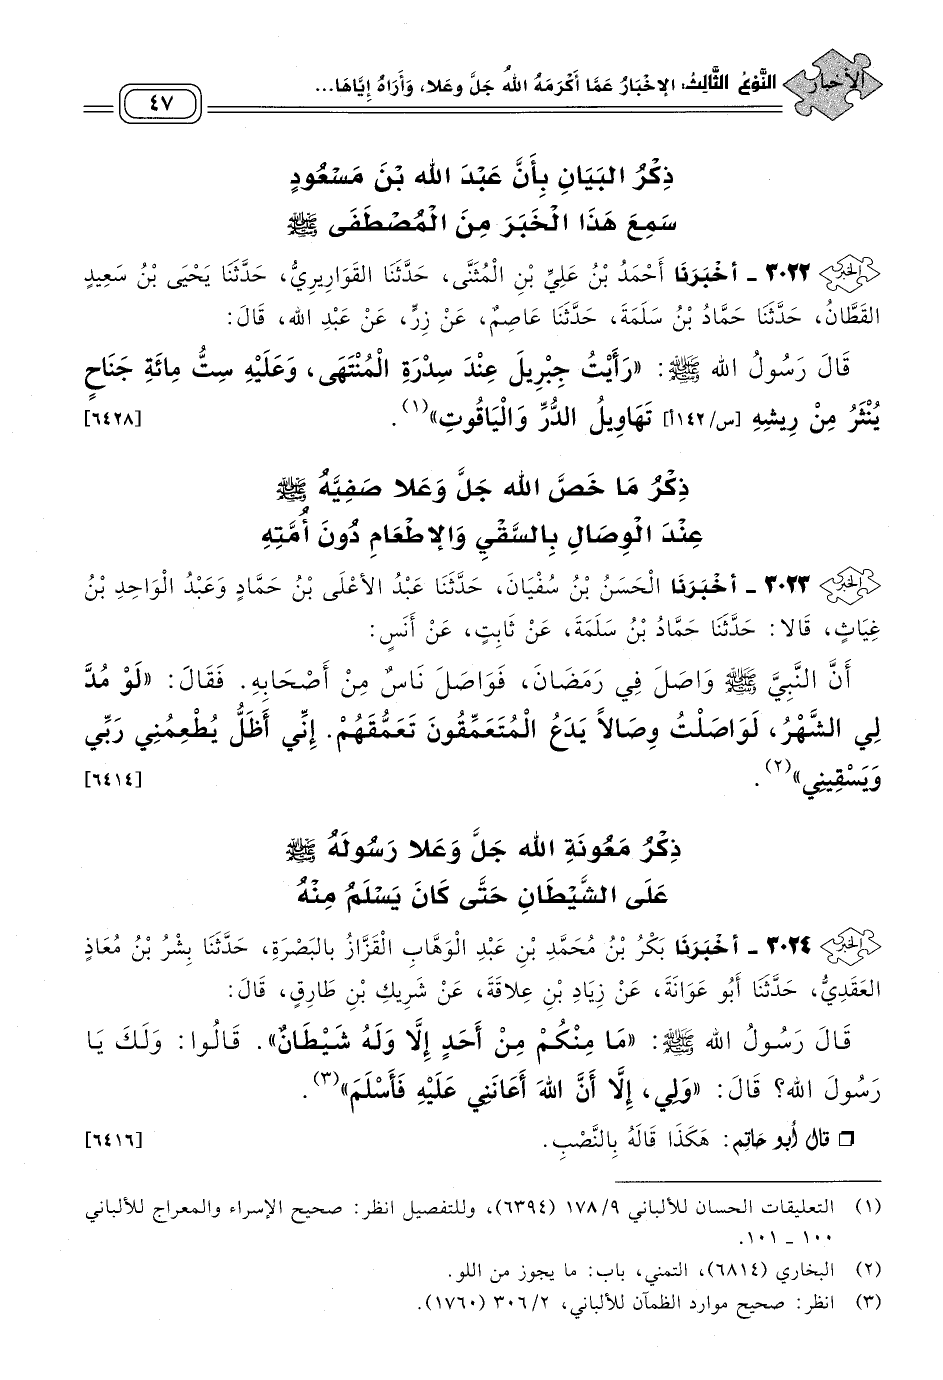 الأخبار
النَّوْعُ الثَّالِثُ: الإخْبَارُ عَمَّا أَكْرَمَهُ اللهُ جَلَّ وعَلا، وَأَرَاهُ إِيَّاهَا...
٤٧
ذِكْرُ البَيَانِ بِأَنَّ عَبْدَ الله بْنَ مَسْعُودٍ
سَمِعَ هَذَا الْخَبَرَ مِنَ الْمُصْطَفَى ﷺ
٣٠٢٢ - أَخْبَرَنَا أَحْمَدُ بْنُ عَلِيِّ بْنِ الْمُثَنَّى، حَدَّثَنَا القَوَارِيرِيُّ، حَدَّثَنَا يَحْيَى بْنُ سَعِيدٍ
القَطَّانُ، حَدَّثَنَا حَمَّادُ بْنُ سَلَمَةَ، حَدَّثَنَا عَاصِمٌ، عَنْ زِرٍّ، عَنْ عَبْدِ الله، قَالَ:
قَالَ رَسُولُ الله ﷺ: «رَأَيْتُ جِبْرِيلَ عِنْدَ سِدْرَةِ الْمُنْتَهَى، وَعَلَيْهِ سِتُّ مِائَةِ جَنَاحٍ
يُنْثَرُ مِنْ رِيشِهِ [س/١٤٢أ] تَهَاوِيلُ الدُّرِّ وَالْيَاقُوتِ»(١). [٦٤٢٨]
ذِكْرُ مَا خَصَّ الله جَلَّ وَعَلا صَفِيَّهُ ﷺ
عِنْدَ الْوِصَالِ بِالسَّقْيِ وَالإطْعَامِ دُونَ أُمَّتِهِ
٣٠٢٣ - أَخْبَرَنَا الْحَسَنُ بْنُ سُفْيَانَ، حَدَّثَنَا عَبْدُ الأَعْلَى بْنُ حَمَّادٍ وَعَبْدُ الْوَاحِدِ بْنُ
غِيَاثٍ، قَالا: حَدَّثَنَا حَمَّادُ بْنُ سَلَمَةَ، عَنْ ثَابِتٍ، عَنْ أَنَسٍ:
أَنَّ النَّبِيَّ ﷺ وَاصَلَ فِي رَمَضَانَ، فَوَاصَلَ نَاسٌ مِنْ أَصْحَابِهِ. فَقَالَ: «لَوْ مُدَّ
لِي الشَّهْرُ، لَوَاصَلْتُ وِصَالاً يَدَعُ الْمُتَعَمِّقُونَ تَعَمُّقَهُمْ. إِنِّي أَظَلُّ يُطْعِمُنِي رَبِّي
وَيَسْقِينِي»(٢). [٦٤١٤]
ذِكْرُ مَعُونَةِ الله جَلَّ وَعَلا رَسُولَهُ ﷺ
عَلَى الشَّيْطَانِ حَتَّى كَانَ يَسْلَمُ مِنْهُ
٣٠٢٤ - أَخْبَرَنَا بَكْرُ بْنُ مُحَمَّدِ بْنِ عَبْدِ الْوَهَّابِ الْقَزَّازُ بالبَصْرَةِ، حَدَّثَنَا بِشْرُ بْنُ مُعَاذٍ
العَقَدِيُّ، حَدَّثَنَا أَبُو عَوَانَةَ، عَنْ زِيَادِ بْنِ عِلاقَةَ، عَنْ شَرِيكِ بْنِ طَارِقٍ، قَالَ:
قَالَ رَسُولُ الله ﷺ: «مَا مِنْكُمْ مِنْ أَحَدٍ إِلَّا وَلَهُ شَيْطَانٌ». قَالُوا: وَلَكَ يَا
رَسُولَ الله؟ قَالَ: «وَلِي، إِلَّا أَنَّ اللهَ أَعَانَنِي عَلَيْهِ فَأَسْلَمَ»(٣).
❒ قال أبو حاتِم: هَكَذَا قَالَهُ بِالنَّصْبِ. [٦٤١٦]
(١) التعليقات الحسان للألباني ١٧٨/٩ (٦٣٩٤)، وللتفصيل انظر: صحيح الإسراء والمعراج للألباني
١٠٠ - ١٠١.
(٢) البخاري (٦٨١٤)، التمني، باب: ما يجوز من اللو.
(٣) انظر: صحيح موارد الظمآن للألباني، ٣٠٦/٢ (١٧٦٠).